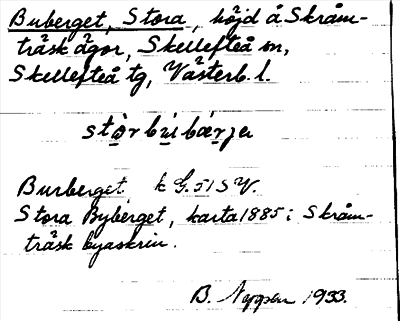 Buberget, Stora, höjd å Skråm-
träsk ägor, Skellefteå sn,
Skellefteå tg, Västerb. l.
stòr búi bǽrja
Burberget k G. 51 S V.
Stora Byberget, karta 1885 i Skråm-
träsk byaskrin.
B. 1933.